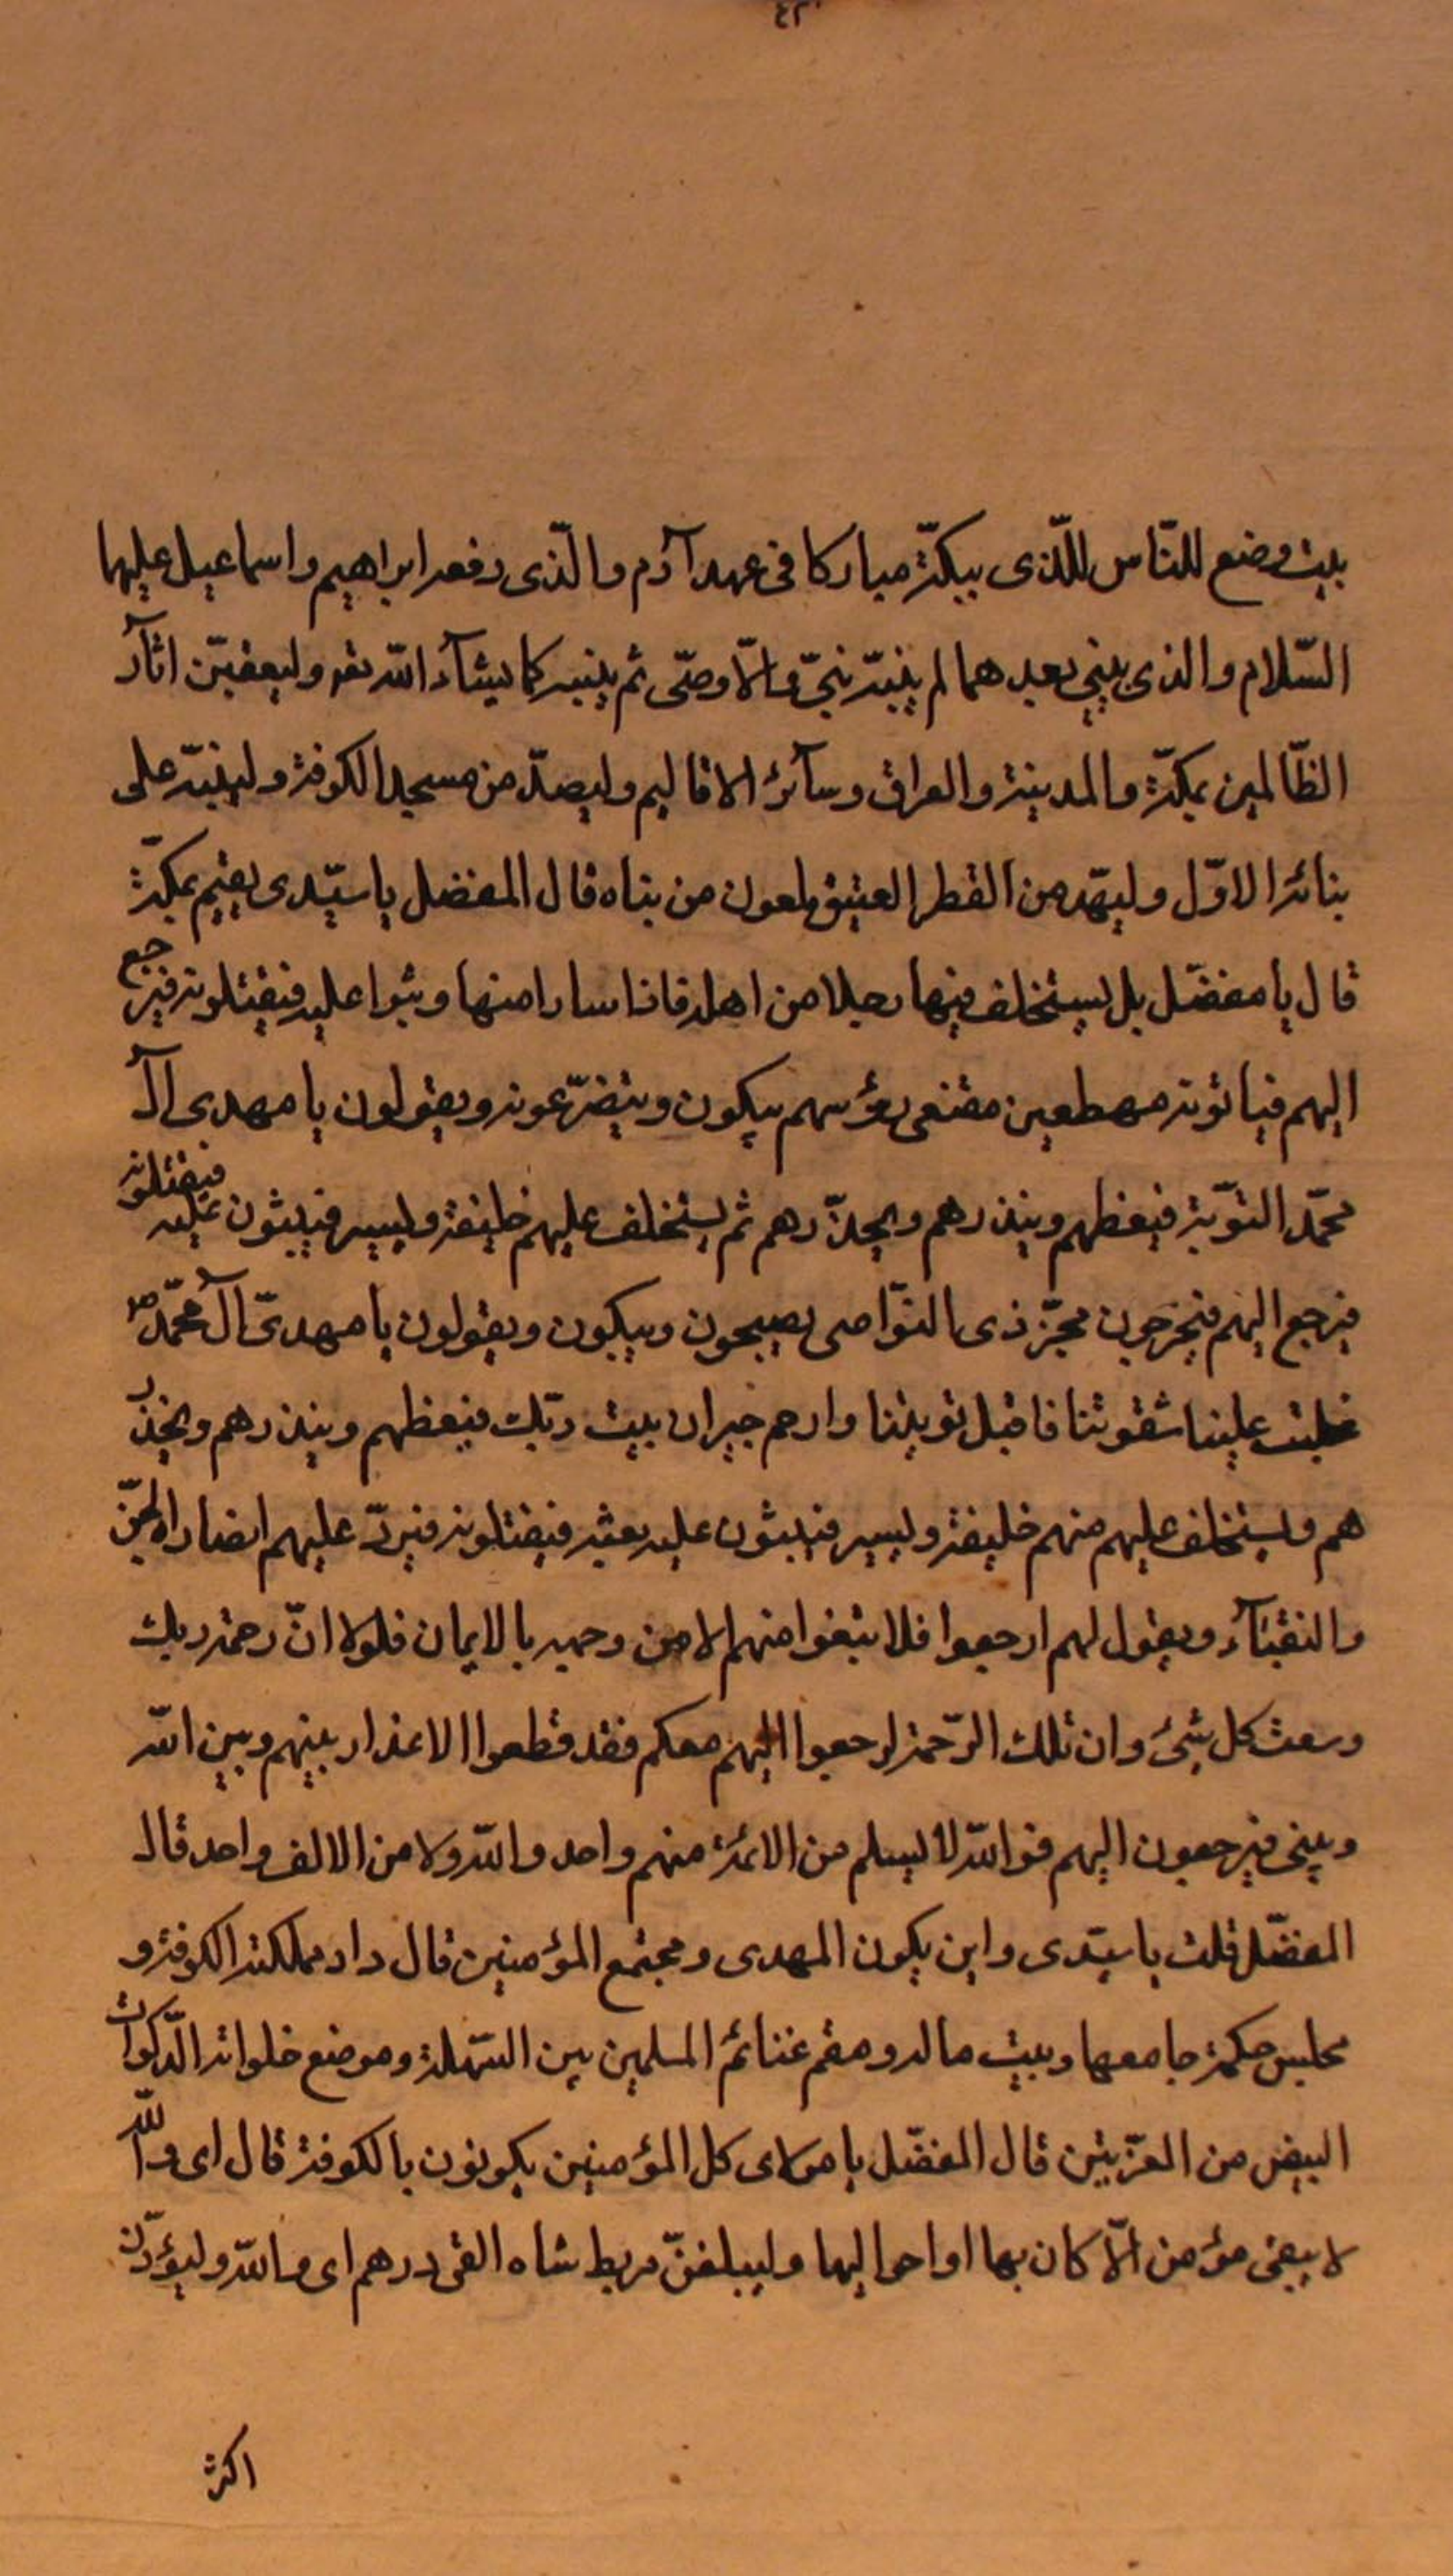 بيت وضع للنّاس للّذى ببكّة مباركا فى عهد آدم والّذى رفعه ابراهيم واسماعيل عليهما
السّلام والذى بنى بعدهما لم يبنه نبىّ ولا وصّى ثم يبنيه كما يشآء الله تعه وليعفينّ اثآر
الظّالمين بمكّة والمدينة والعراق وسآئر الاقاليم وليهدّمن مسجد الكوفة وليبنيّه على
بنائه الاوّل وليهدّمن القصر العتيق ملعون من بناه قال المفضل يا سيّدى يقيم بمكّة
قال يا مفضّل بل يستخلف فيها رجلا من اهله فاذا سار منها وثبوا عليه فيقتلونه فيرجع
اليهم فياتونه مهطعين مقنعى رؤسهم يبكون ويتضرّعون ويقولون يا مهدى آل
محمّد التوّبة فيعظهم وينذرهم ويحذّرهم ثم يستخلف عليهم خليفة ويسير فيثبون عليه فيقتلونه
فيرجع اليهم فيخرجون مجزّذى النوّاصى يصيحون ويبكون ويقولون يا مهدىّ آل محمّد ص
غلبت علينا شقوتنا فاقبل توبتنا وارحم جيران بيت ربّك فيعظهم وينذرهم ويحذر
هم ويستخلف عليهم منهم خليفة ويسير فيثبون عليه بعده فيقتلونه فيردّ عليهم انصاره الجنّ
والنقبآء ويقول لهم ارجعوا فلا تبقوا منهم الا من وجهه بالايمان فلولا انّ رحمة ربك
وسعت كل شئ وان تلك الرّحمة لرجعوا اليهم معكم فقد قطعوا الاعذار بينهم وبين الله
وبينى فيرجعون اليهم فوالله لا يسلم من الائمة منهم واحد والله ولا من الالف واحد قال
المفضّل قلت يا سيّدى واين يكون المهدى ومجتمع المؤمنين قال دار مملكته الكوفة و
مجلس حكمه جامعها وبيت ماله ومقم غنائم المسلمين بين السّهلة وموضع خلواته الذّكوات
البيض من الغرّيين قال المفضّل يا مولاى كل المؤمنين يكونون بالكوفة قال اى والله
لا يبقى مؤمن الّا كان بها او احواليها وليبلغنّ مربط شاه الفى درهم اى والله وليؤدنّ
اكثر